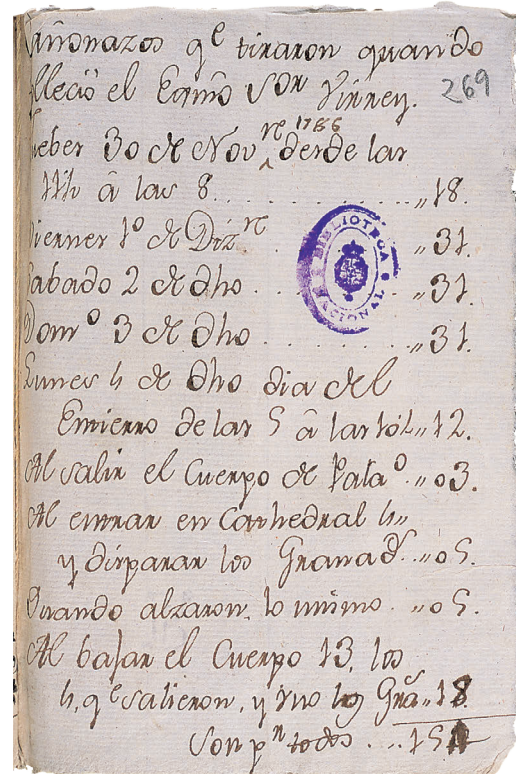 Cañonazos qᵉ tiraron quando
falleció el Exmõ Sᵒʳ Virrey.
269
Jueber 30 de Novʳᵉ 1786 desde las
11½ â las 8 . . . . . . . . „ 18.
Viernes 1º de Dizʳᵉ . . . „ 31.
Sabado 2 de dho . . . . „ 31.
Domº 3 de dho . . . . . „ 31.
BIBLIOTECA NACIONAL
Lunes 4 de dho dia del
Entierro de las 5 â las 10½ „ 12.
Al salir el Cuerpo de Palaº . „ 03.
Al entrar en Cathedral 4 „
y disparar los Granadˢ . „ 05.
Quando alzaron, lo mismo . „ 05.
Al bajar el Cuerpo 13, los
4, qᵉ salieron, y vno los Grãˢ „ 18
Son pʳ todos . . . 15